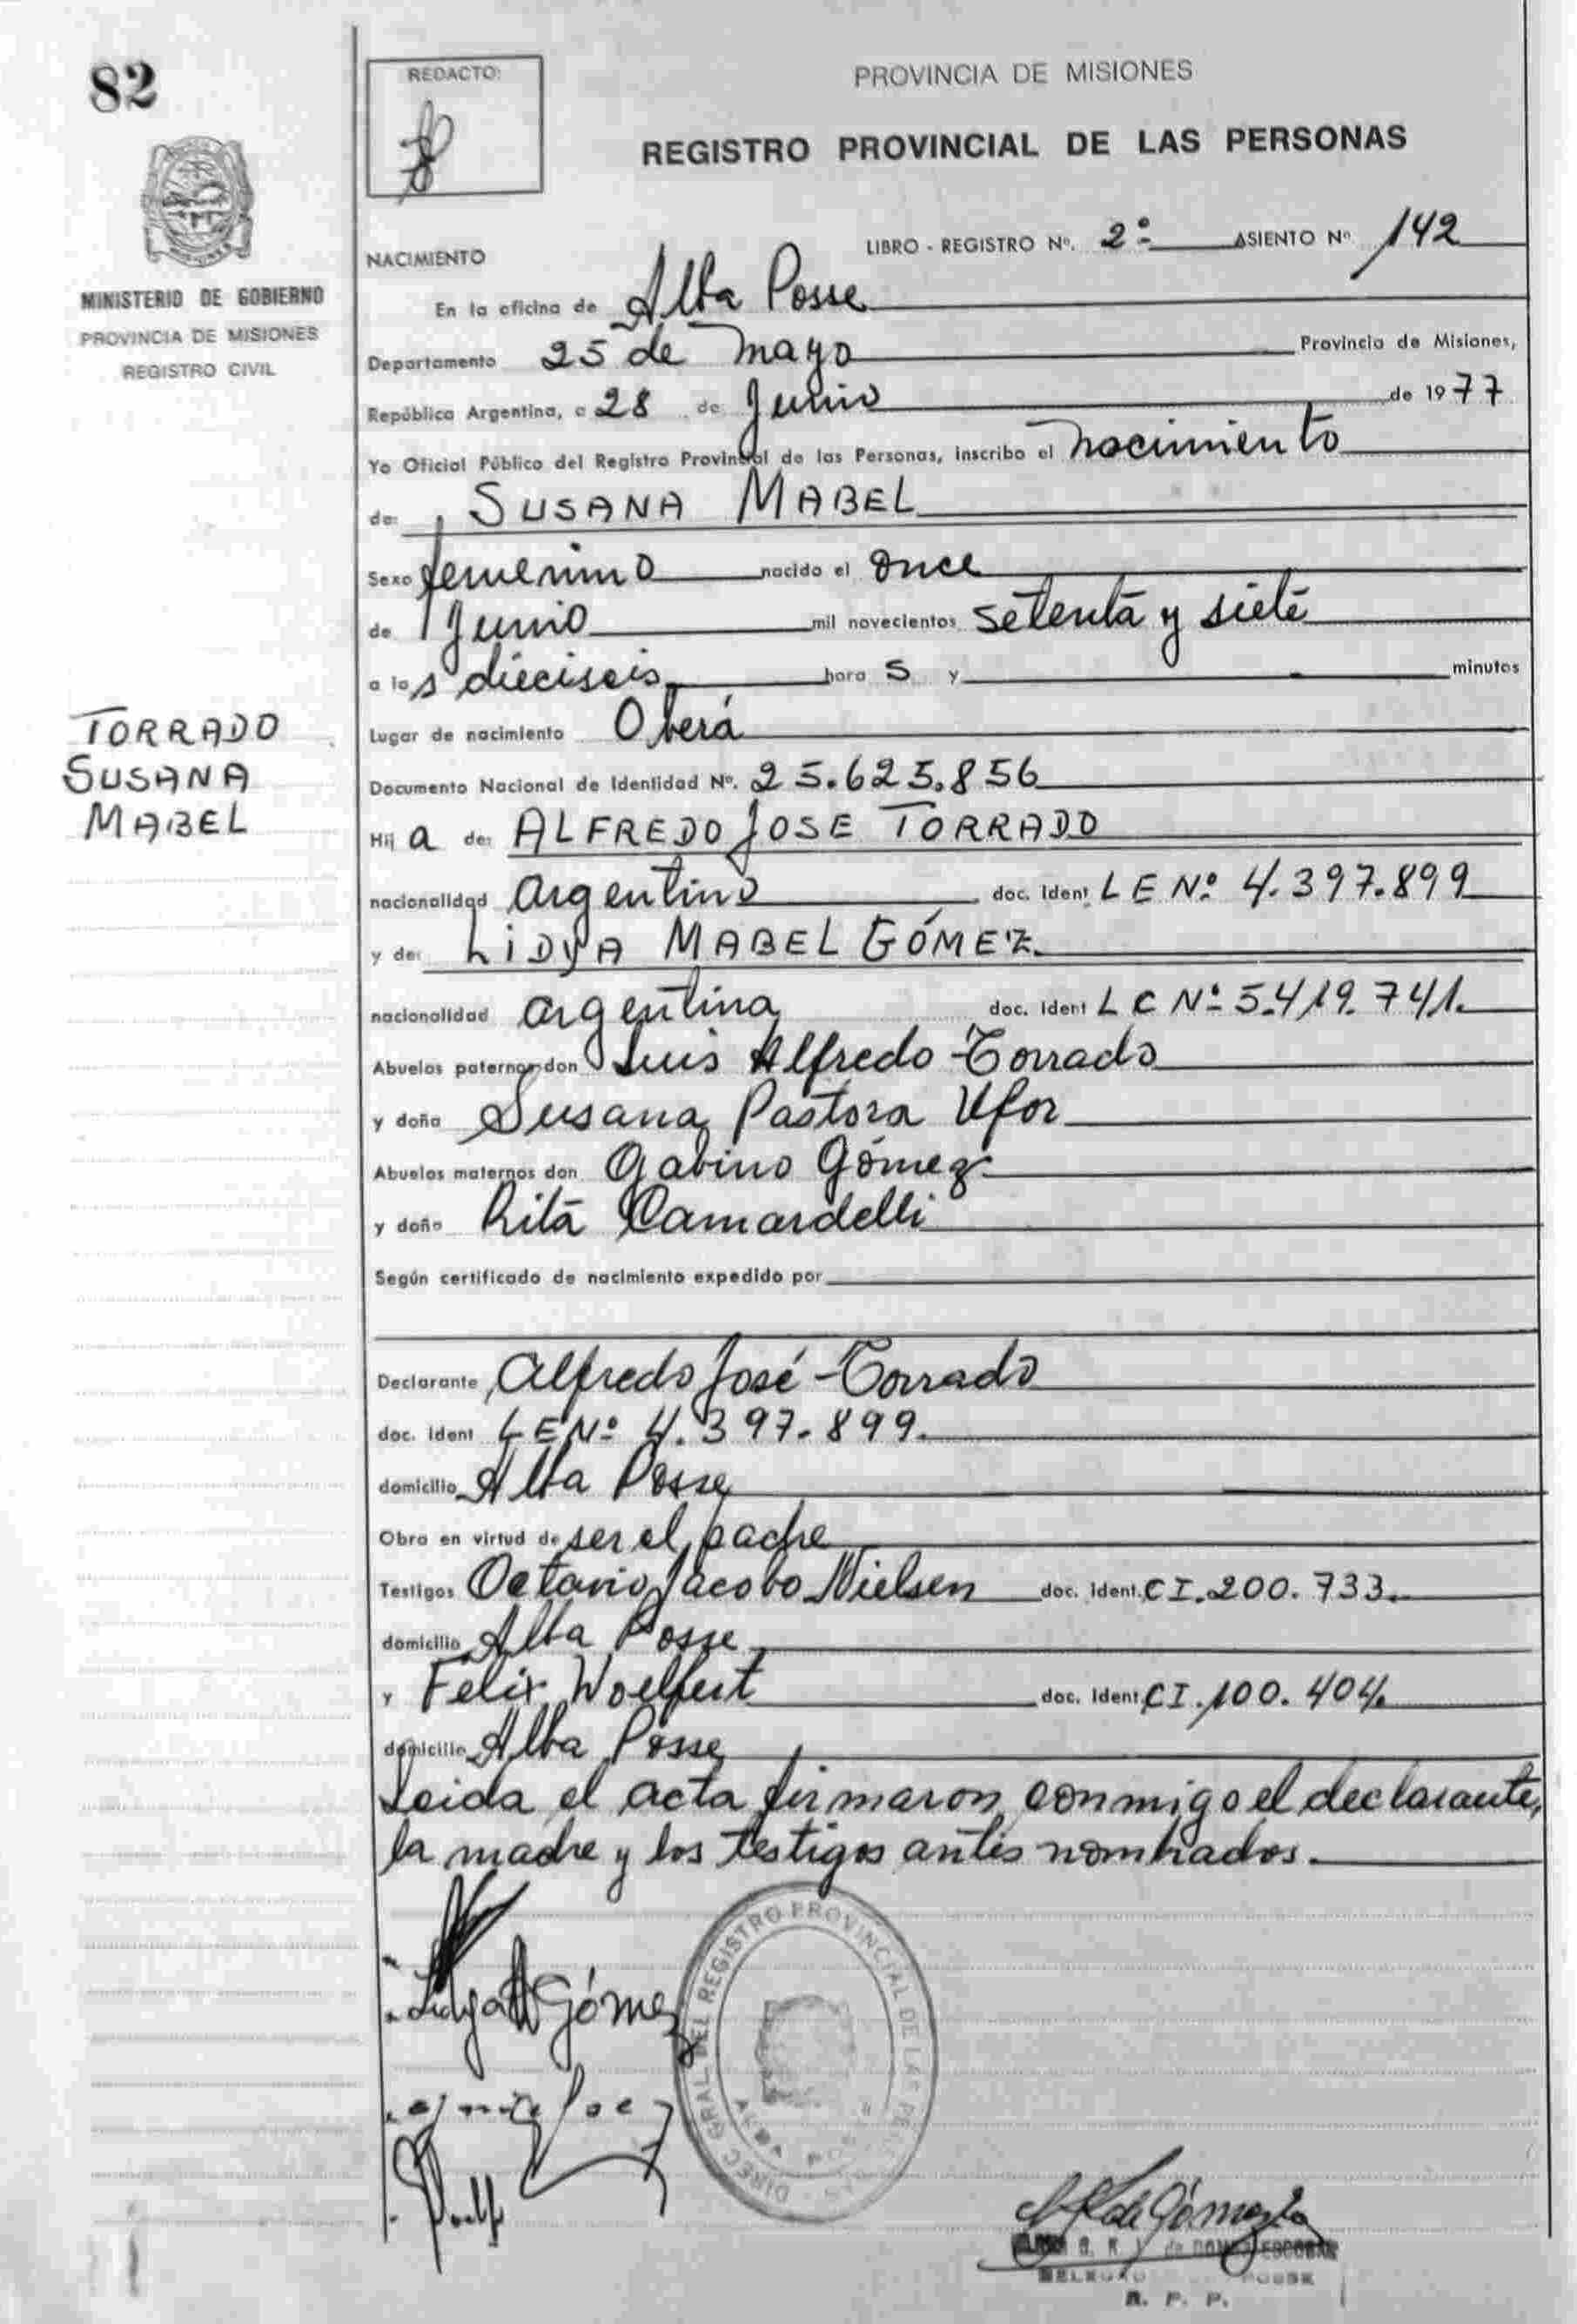 82
REDACTO:
PROVINCIA DE MISIONES
REGISTRO PROVINCIAL DE LAS PERSONAS
MINISTERIO DE GOBIERNO
PROVINCIA DE MISIONES
REGISTRO CIVIL
LIBRO - REGISTRO Nº. 2º ASIENTO Nº 142
NACIMIENTO
En la oficina de Alba Posse
Departamento 25 de Mayo Provincia de Misiones,
República Argentina, a 28 de Junio de 1977
Yo Oficial Público del Registro Provincial de las Personas, inscribo el nacimiento
de: SUSANA MABEL
Sexo femenino nacido el once
de Junio mil novecientos setenta y siete
a las dieciseis horas y - minutos
TORRADO
SUSANA
MABEL
Lugar de nacimiento Oberá
Documento Nacional de Identidad Nº. 25.625.856
Hija de: ALFREDO JOSE TORRADO
nacionalidad argentino doc. Ident LE Nº 4.397.899
y de: LIDYA MABEL GÓMEZ
nacionalidad argentina doc. Ident LC Nº 5.419.741.
Abuelos paternos don Luis Alfredo Torrado
y doña Susana Pastora Ufor
Abuelos maternos don Gabino Gómez
y doña Rita Camardelli
Según certificado de nacimiento expedido por
Declarante Alfredo José Torrado
doc. Ident LE Nº 4.397.899.
domicilio Alba Posse
Obra en virtud de ser el padre
Testigos Octavio Jacobo Nielsen doc. Ident. CI. 200.733.
domicilio Alba Posse
y Felix Woelfert doc. Ident CI. 100.404.
domicilio Alba Posse
Leida el acta firmaron conmigo el declarante,
la madre y los testigos antes nombrados.
Lidya M Gómez
DIREC GRAL DEL REGISTRO PROVINCIAL DE LAS PERSONAS
ALBA POSSE
de Gómez
R. P. P.